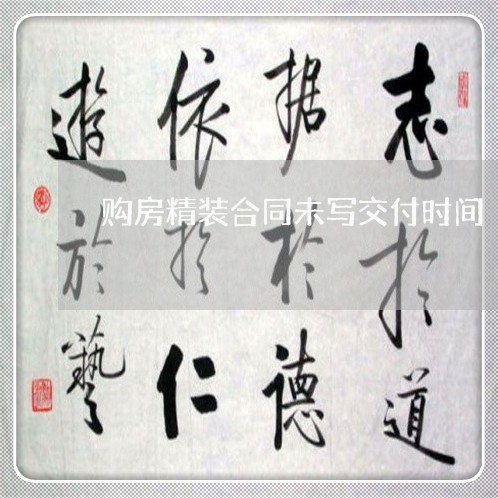 志於道
据於德
依於仁
遊於藝
购房精装合同未写交付时间